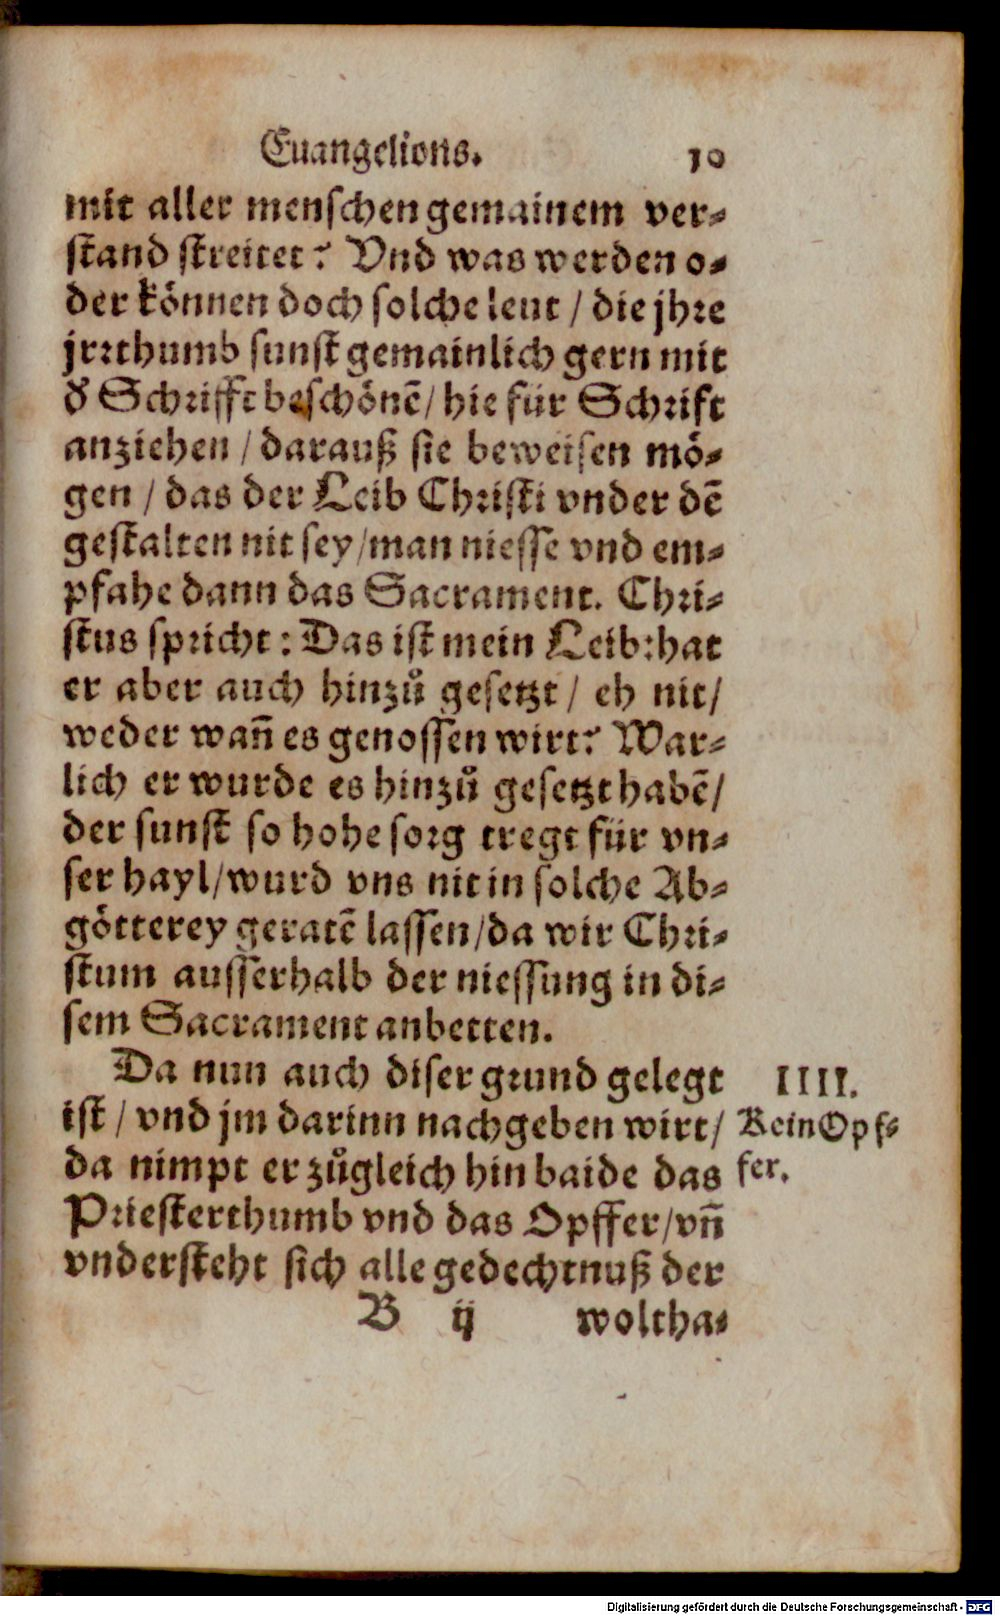 Euangelions. 10
mit aller menschen gemainem ver⸗
stand streitet? Vnd was werden o⸗
der können doch solche leut / die jhre
jrrthumb sunst gemainlich gern mit
d̕ Schrifft beschönẽ / hie für Schrift
anziehen / darauß sie beweisen mö⸗
gen / das der Leib Christi vnder dẽ
gestalten nit sey / man niesse vnd em⸗
pfahe dann das Sacrament. Chri⸗
stus spricht: Das ist mein Leib: hat
er aber auch hinzů gesetzt / eh nit /
weder wañ es genossen wirt? War⸗
lich er wurde es hinzů gesetzt habẽ /
der sunst so hohe sorg tregt für vn⸗
ser hayl / wurd vns nit in solche Ab⸗
götterey geratẽ lassen / da wir Chri⸗
stum ausserhalb der niessung in di⸗
sem Sacrament anbetten.
Da nun auch diser grund gelegt
IIII.
ist / vnd jm darinn nachgeben wirt /
Kein Opf⸗
da nimpt er zůgleich hin baide das
fer.
Priesterthumb vnd das Opffer / vñ
vndersteht sich alle gedechtnuß der
B ij woltha⸗
Digitalisierung gefördert durch die Deutsche Forschungsgemeinschaft - DFG